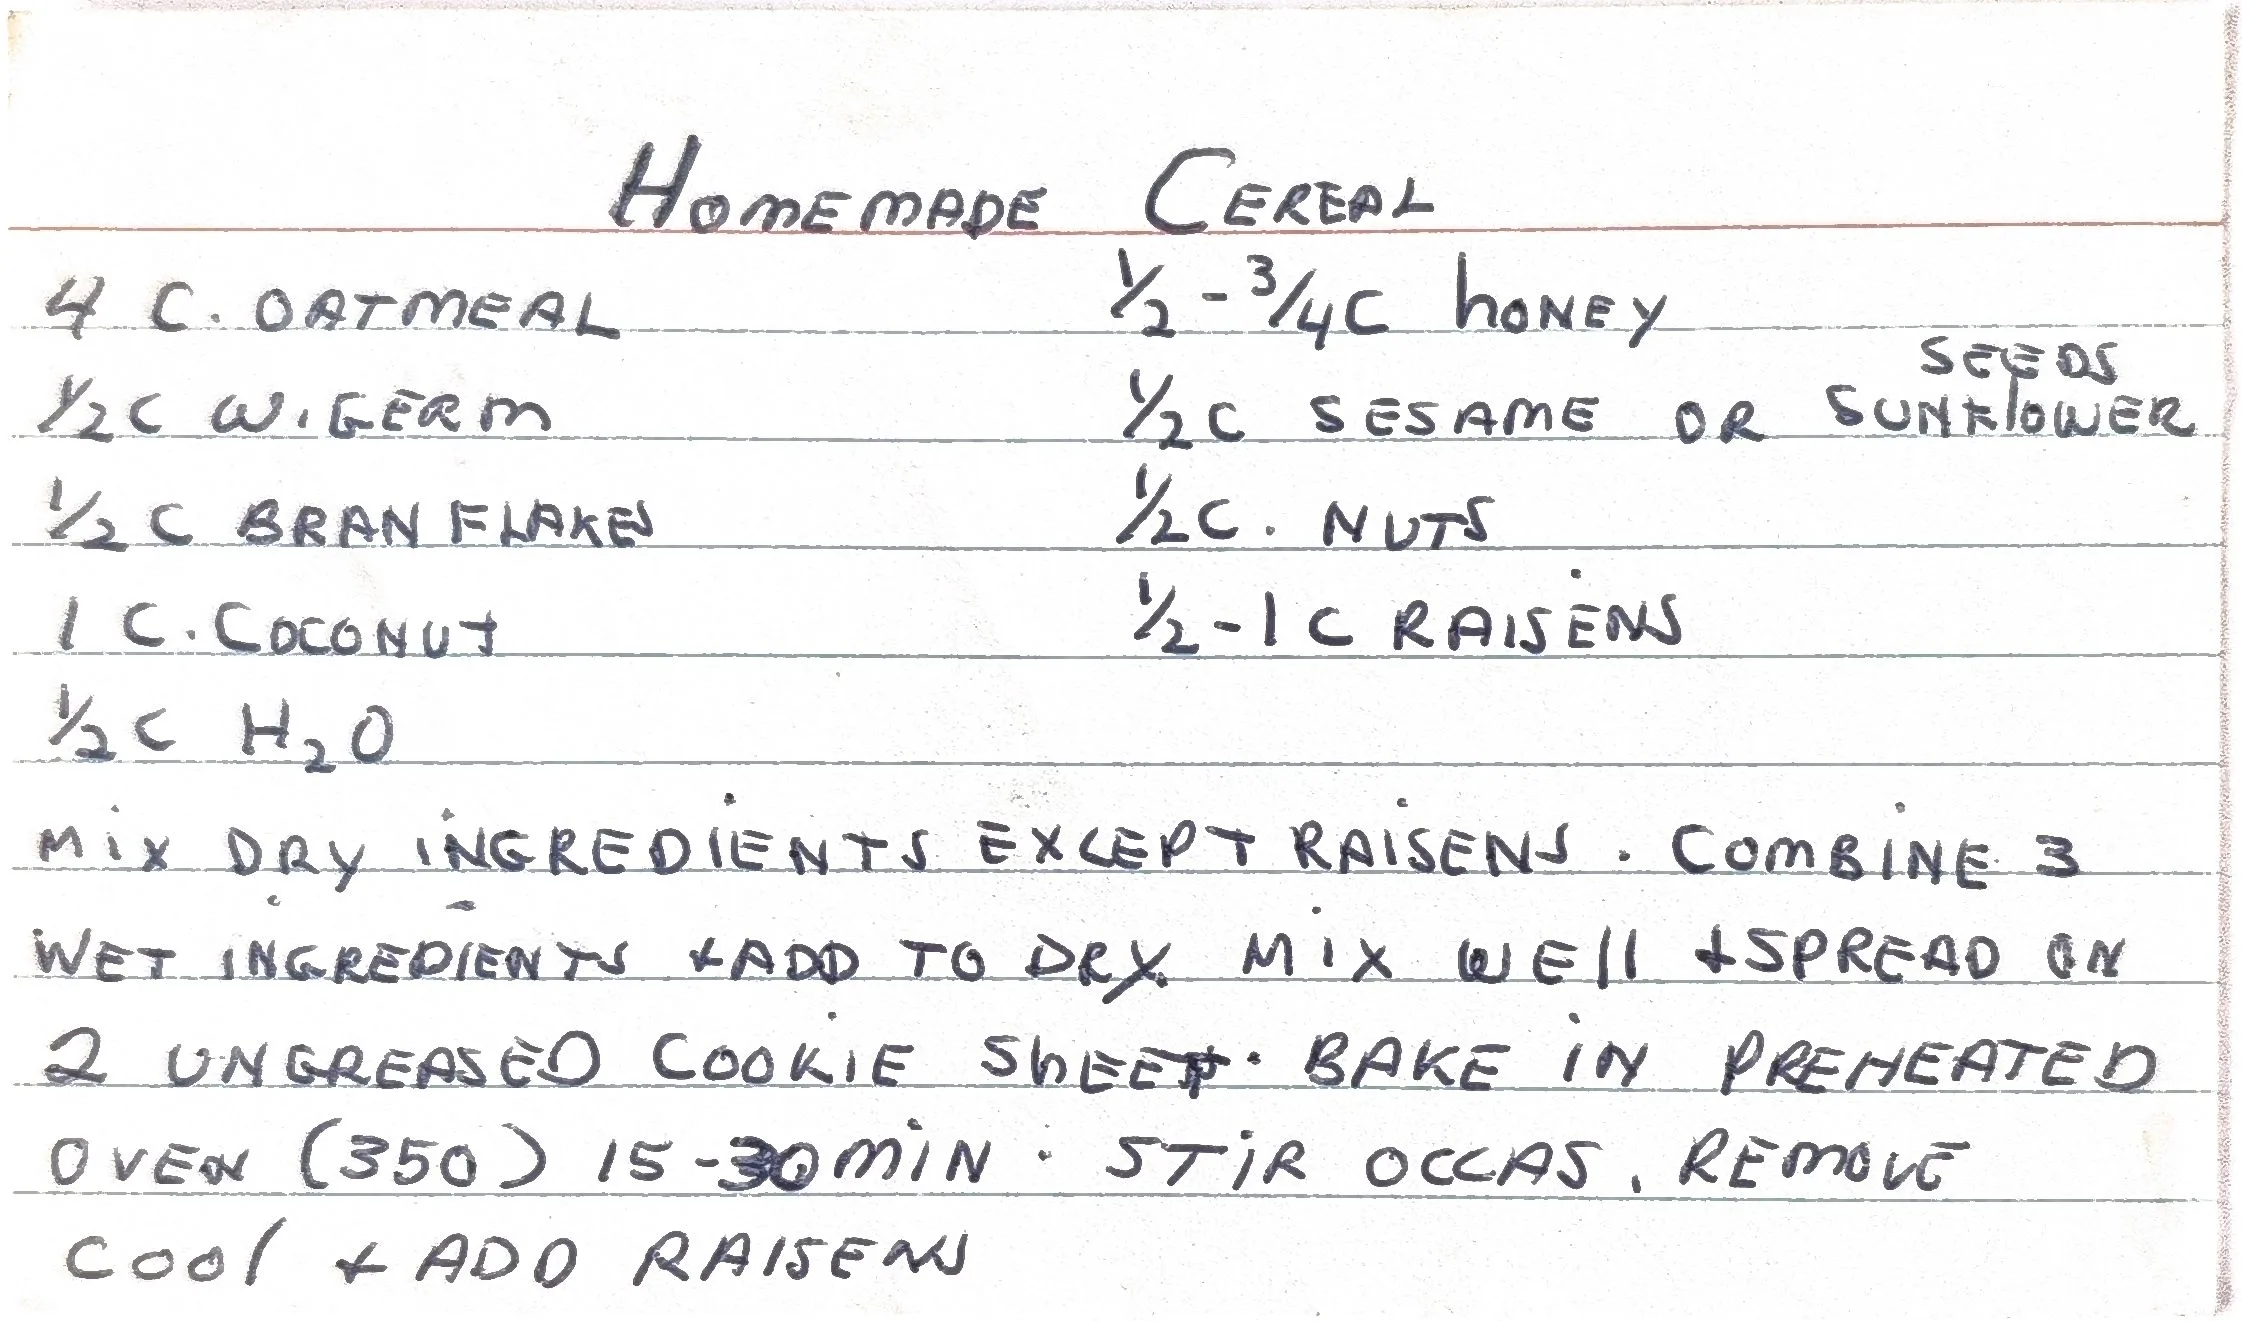 HOMEMADE CEREAL
4 C. OATMEAL
1/2 C W. GERM
1/2 C BRAN FLAKES
1 C. COCONUT
1/2 C H2O
1/2 - 3/4 C hONEY
1/2 C SESAME OR SUNFlOWER SEEDS
1/2 C. NUTS
1/2 - 1 C RAISENS
MiX DRY iNGREDIENTS EXCEPT RAISENS. COMBINE 3
WET INGREDIENTS + ADD TO DRY. MIX WEll + SPREAD ON
2 UNGREASED COOKiE ShEET. BAKE iN PREHEATED
OVEN (350) 15-30 MiN. STiR OCCAS. REMOVE
COOl + ADD RAISENS